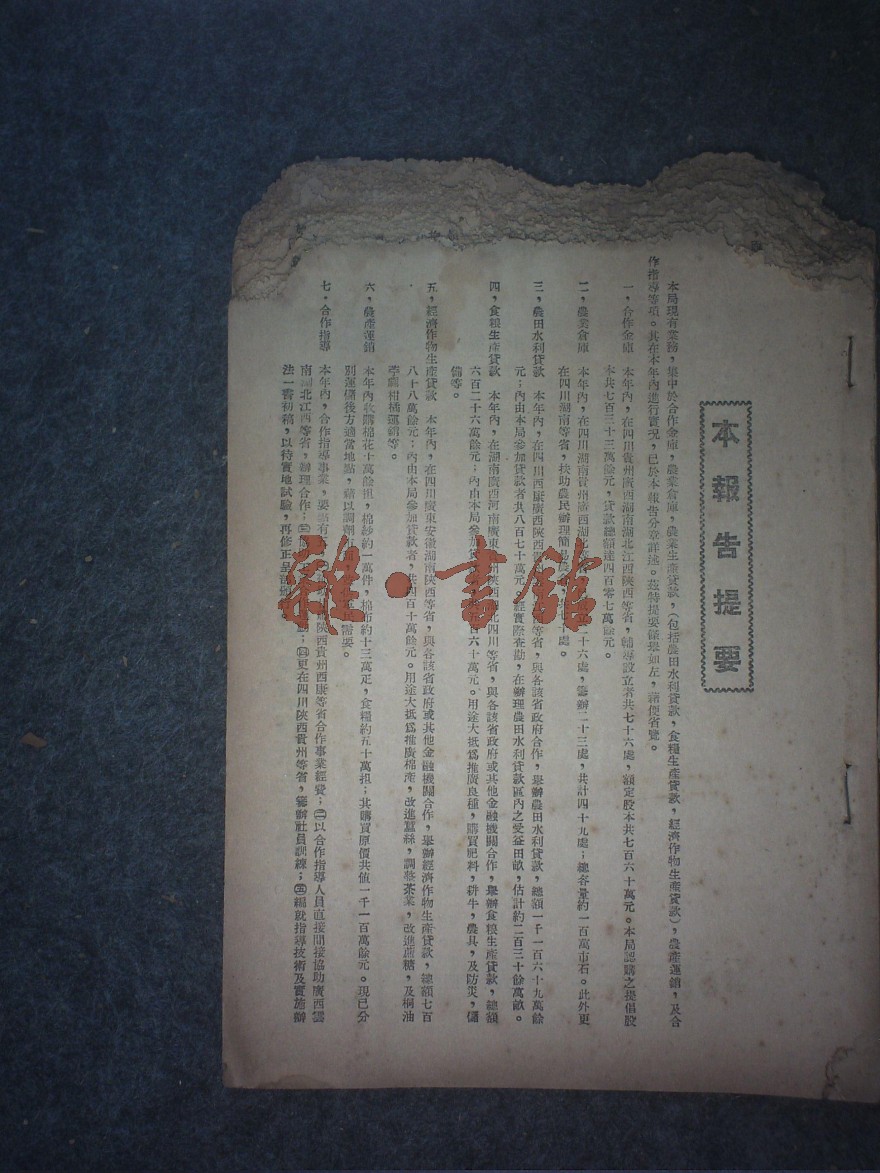 本報告提要
本局現有業務，集中於合作金庫，農業倉庫，農業生產貸款，（包括農田水利貸款，食糧生產貸款，經濟作物生產貸款），農產運銷，及合
作指導等項。其在本年內進行實況，已於本報告分章詳述。茲特提要條舉如左，藉便省覽。
一，合作金庫 本年內，在四川貴州廣西湖南湖北江西陝西等省，輔導設立者共七十六處，額定股本共七百六十萬元。本局認購之提倡股
本共七百三十三萬餘元，貸款總額達四百零七萬餘元。
二，農業倉庫 本年內，在四川湖南貴州廣西湖 二十六處，籌辦二十三處，共計四十九處；總容量約一百萬市石。此外更
在四川湖南等省，扶助農民辦理簡易農 處。
三，農田水利貸款 本年內，在四川西康廣西陝西 等省，與各該省政府合作，舉辦農田水利貸款，總額一千一百六十九萬餘
元；內由本局參加貸款者共八百七十萬元。經實際查勘，在辦理農田水利貸款區內之受益田畝，估計約二百三十餘萬畝。
四，食糧生產貸款 本年內，在湖南廣西河南廣東 州陝西 北四川等省，與各該省政府或其他金融機關合作，舉辦食糧生產貸款，總額
六百二十六萬餘元；內由本局參加 百六十萬元。用途大抵爲推廣良種，購買肥料，耕牛，農具，及防災，儲
備等。
五，經濟作物生產貸款 本年內，在四川廣東安徽湖南陝西等省，與各該省政府或其他金融機關合作，舉辦經濟作物生產貸款，總額七百
八十八萬餘元；內由本局參加貸款者，共四百十萬餘元。用途大抵爲推廣棉產，改進蠶絲，調整茶業，改進蔗糖，及桐油
苧蔴柑橘運銷等。
六，農產運銷 本年內收購棉花十萬餘担，棉紗約一萬件，棉布約十三萬疋，食糧約五十萬担；其購買原價共值一千一百萬餘元。現已分
別運儲後方適當地點，藉以調劑 需要。
七，合作指導 本年內，合作指導事業，要 有 陝西貴州西康等省合作事業經費；㈡以合作指導人員直接間接協助廣西雲
南湖北江西等省，辦理合作；㈢ ；㈣更在四川陝西貴州等省，籌辦社員訓練；㈤編就指導技術及實施辦
法一書初稿，以待實地試驗，再修正呈
雜·書館